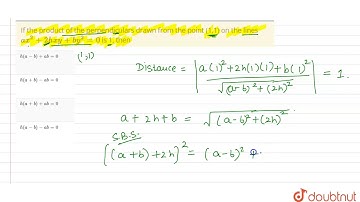 If the product of the perpendiculars drawn from the point (1,1) on the lines
ax² + 2hxy + by² = 0 is 1, then
h(a − b) − ab = 0
h(a − b) − ab = 0
h(a − b) − ab = 0
h(a − b) − ab = 0
(1,1)
Distance = | a(1)²+2h(1)(1)+b(1)² / √(a-b)²+(2h)² | = 1.
a + 2h + b = √(a-b)²+(2h)²
S.B.S.
[(a+b)+2h]² = (a-b)²
doubtnut